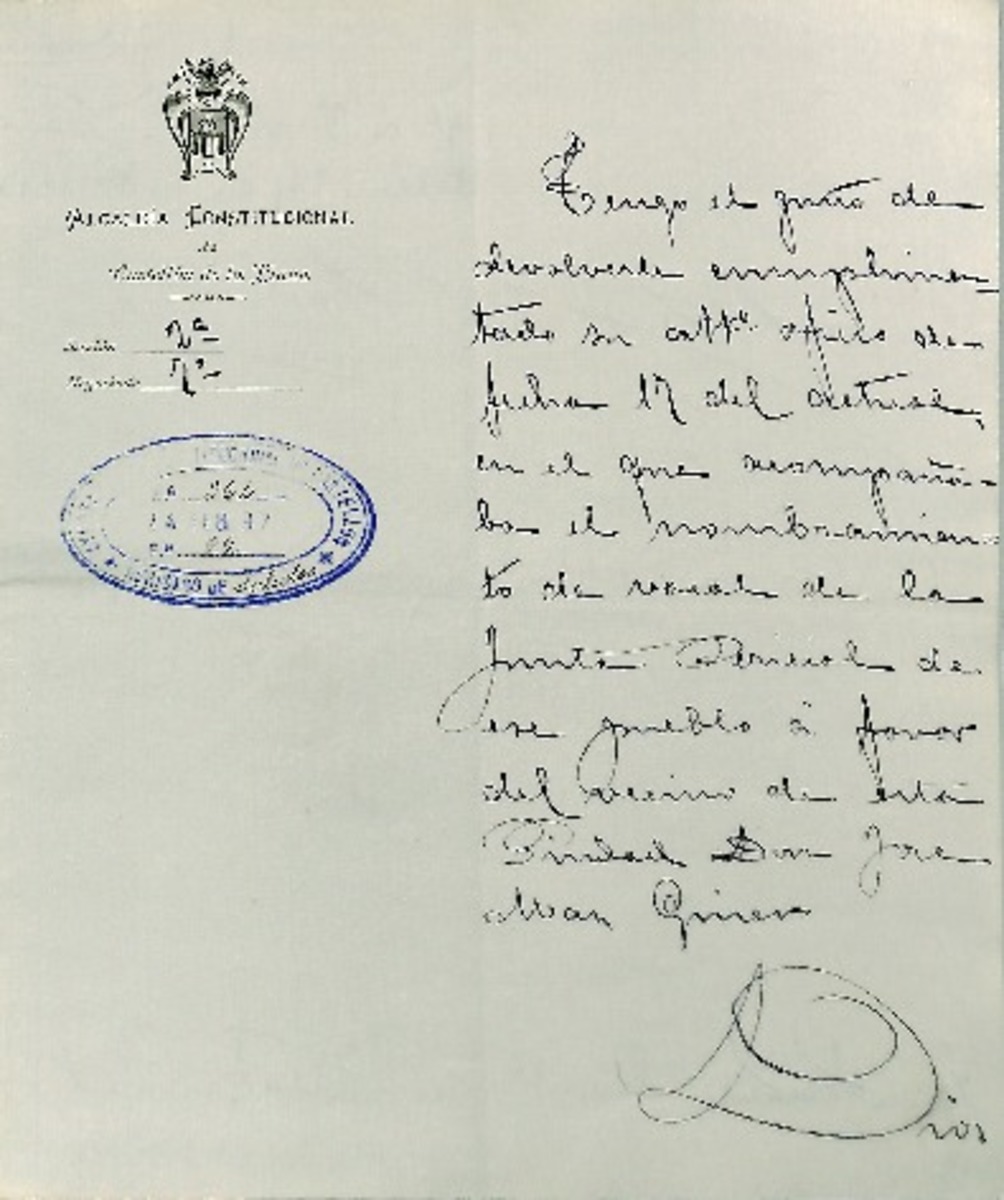 ALCALDÍA CONSTITUCIONAL
de
Castellón de la Plana
Sección 2ª
Negociado 1º
264
14 FEB
NEGOCIADO DE
Tengo el gusto de
devolverle cumplimen-
tado su attº oficio de
fecha 17 del actual,
en el que acompaña-
ba el nombramien-
to de vocal de la
Junta Pericial de
ese pueblo á favor
del vecino de esta
Ciudad Don José
Giner
Dios